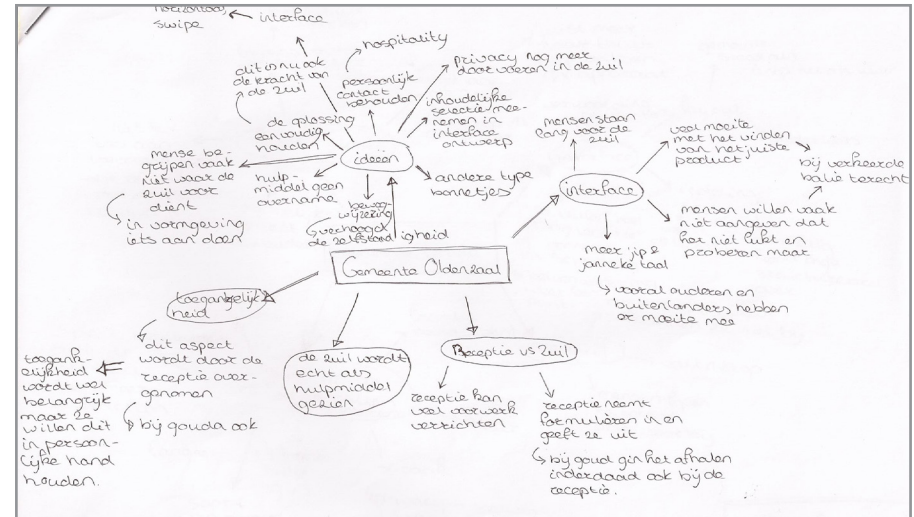 horizontaal
swipe
interface
hospitality
dit is nu ook
de kracht van
de zuil
persoonlijk
contact
behouden
privacy nog meer
doorvoeren in de zuil
de oplossing
eenvoudig
houden
inhoudelijke
selectie mee-
nemen in
interface
ontwerp
mense be-
grijpen vaak
niet waar de
zuil voor
dient
in vormgeving
iets aan doen
ideeën
hulp-
middel geen
overname
beweg-
wijzering
verhoogd
de zelfstandigheid
andere type
bonnetjes
mensen staan
lang voor de
zuil
veel moeite
met het vinden
van het juiste
product
bij verkeerde
balie terecht
interface
mensen willen vaak
niet aangeven dat
het niet lukt en
proberen maar
meer jip &
janneke taal
vooral ouderen en
buitenlanders hebben
er moeite mee
Gemeente Oldenzaal
toegankelijk
heid
dit aspect
wordt door de
receptie over-
genomen
bij gouda ook
toegank-
elijkheid
wordt wel
belangrijk
maar ze
willen dit
in persoon-
lijke hand
houden.
de zuil wordt
echt als
hulpmiddel
gezien
Receptie vs zuil
receptie kan
veel voorwerk
verrichten
receptie neemt
formulieren in en
geeft ze uit
bij goud gin het afhalen
inderdaad ook bij de
receptie.